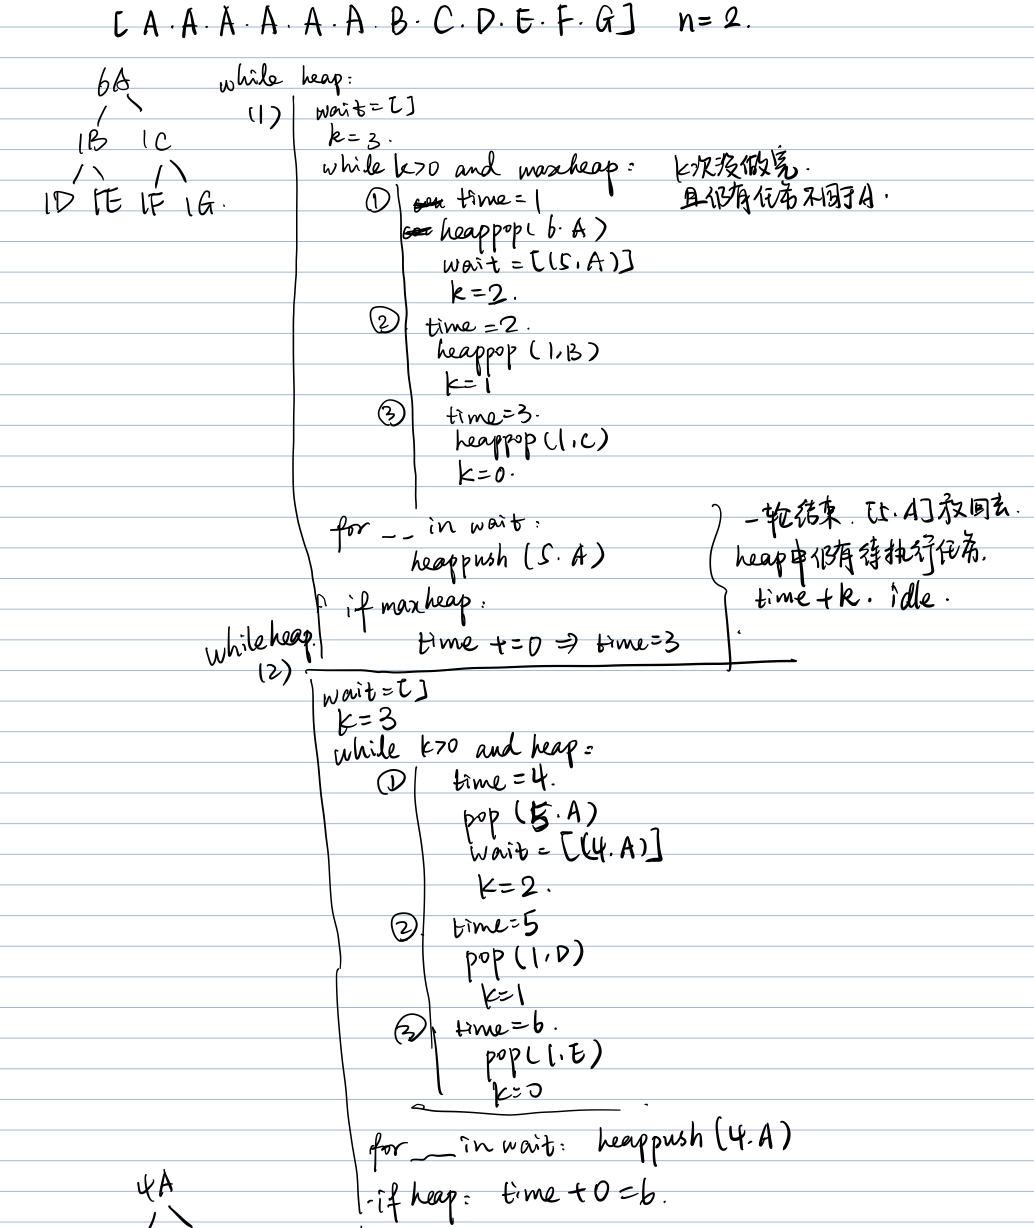 [A.A.A.A.A.A.B.C.D.E.F.G] n=2.
6A
1B 1C
1D 1E 1F 1G.
while heap:
(1)
wait=[]
k=3.
while k>0 and maxheap: k次没做完.
且仍有任务不同于A.
① time=1
heappop(6.A)
wait=[(5,A)]
k=2.
② time=2.
heappop(1,B)
k=1
③ time=3.
heappop(1,C)
k=0.
for __ in wait:
heappush(5.A)
if maxheap:
time+=0⇒time=3
一轮结束.[5.A]放回去.
heap中仍有待执行任务.
time+k. idle.
while heap.
(2)
wait=[]
k=3
while k>0 and heap:
① time=4.
pop(5.A)
wait=[(4.A)]
k=2.
② time=5
pop(1,D)
k=1
③ time=6.
pop(1.E)
k=0
for __ in wait: heappush(4.A)
if heap: time+0=6.
4A